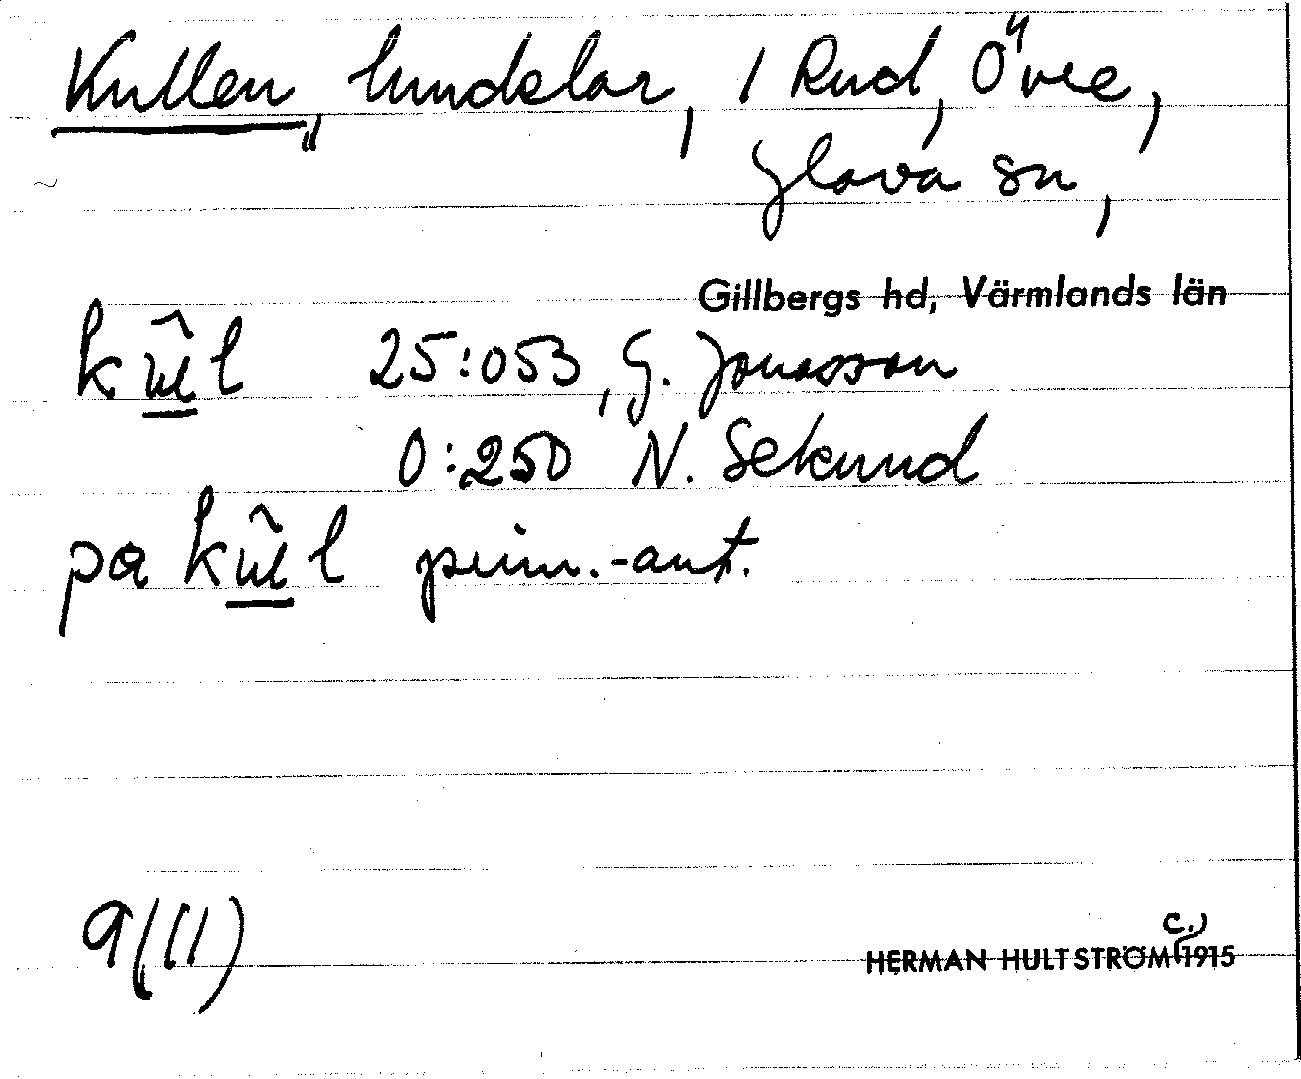 Kullen, hemdelar, i Rud, Övre,
Glava sn,
Gillbergs hd, Värmlands län
ku̲l 25:053, G. Jonasson
0:250 N. Sekund
pa ku̲l prim.-ant.
9(II)
HERMAN HULTSTRÖM c. 1915